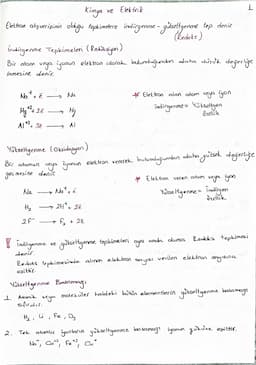 Kimya ve Elektrik
1
Elektron alışverişinin olduğu tepkimelere indirgenme - yükseltgenme tep. denir
(Redoks)
İndirgenme Tepkimeleri (Redüksiyon)
Bir atom veya iyonun elektron alarak bulunduğundan daha düşük değerliğe
denir
Na⁺ + ē → Na
Mg⁺² + 2ē → Mg
Al⁺³ + 3ē → Al
* Elektron alan atom veya iyon
indirgenme = Yükseltgen
özellik
Yükseltgenme (Oksidasyon)
Bir atomun veya iyonun elektron vererek bulunduğundan daha yüksek değerliğe
denir
Na → Na⁺ + ē
H₂ → 2H⁺ + 2ē
2F⁻ → F₂ + 2ē
* Elektron veren atom veya iyon
Yükseltgenme = İndirgen
özellik
İndirgenme ve yükseltgenme tepkimeleri aynı anda Redoks tepkimesi
denir
Redoks tepkimelerinde alınan elektron sayısı verilen elektron sayısına
eşittir.
Yükseltgenme Basamağı
1. Atomik veya moleküler haldeki bütün elementlerin yükseltgenme basamağı
sıfırdır.
H₂, Li, Fe, O₃
2. Tek atomlu iyonların yükseltgenme basamağı iyonun yüküne eşittir.